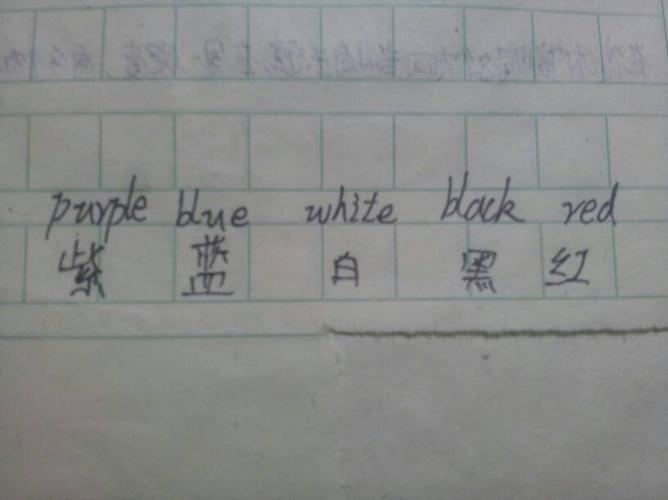 purple blue white black red
紫 蓝 白 黑 红